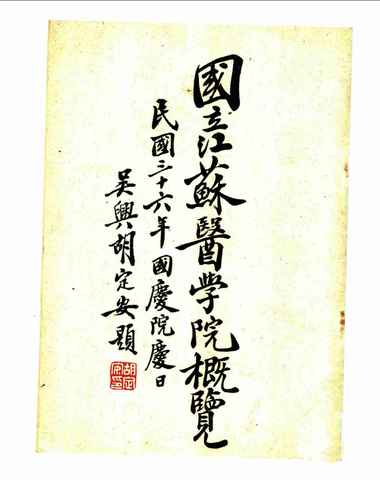 國立江蘇醫学院概覽
民國三十六年國慶院慶日
吴興胡定安題
胡定
安印